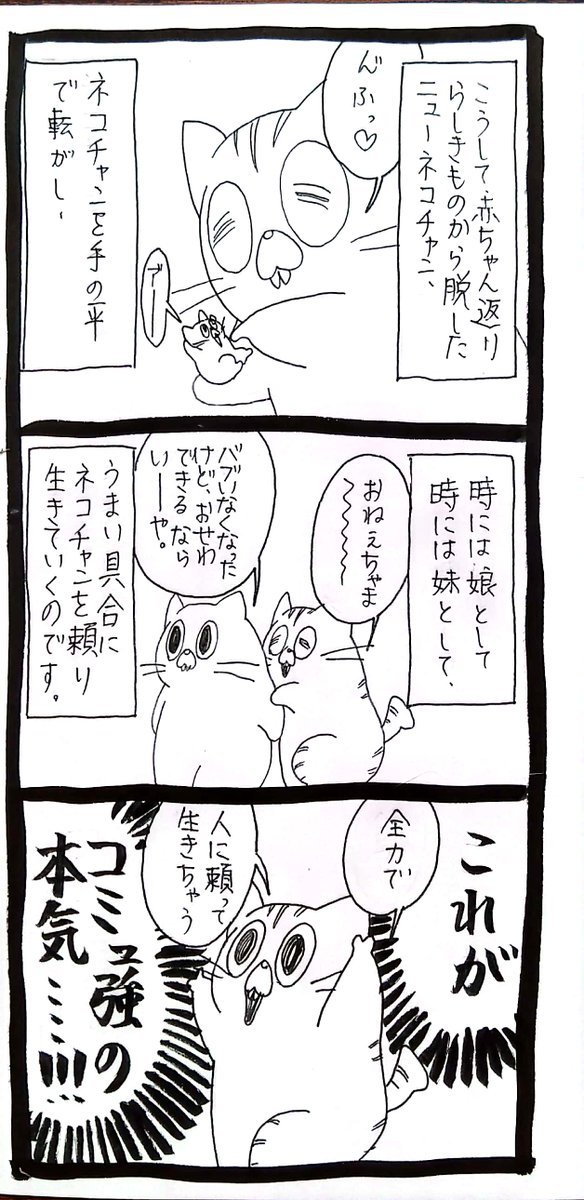 こうして、赤ちゃん返り
らしきものから脱した
ニューネコチャン、
んふっ♡
ネコチャンを手の平
で転がし、
時には娘として
時には妹として、
おねぇちゃま
〜〜〜〜〜
バブいなくなった
けど、おせわ
できるなら
いーや。
うまい具合に
ネコチャンを頼り
生きていくのです。
これが
全力で
人に頼って
生きちゃう
コミュ強の
本気……!!!